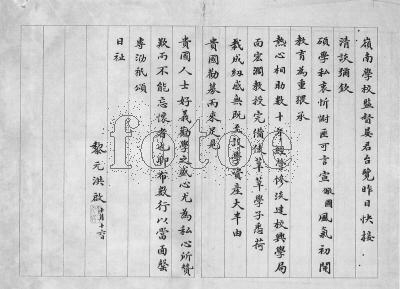 嶺南學校監督英君台覽昨日快接
清談彌欽
碩學私衷忻謝匪可言宣敝國風氣初開
教育為重猥承
熱心相助數十年經營慘淡建校興學局
面宏濶教授完備後莘莘學子悉荷
栽成紉感無既至設學資產大半由
貴國勸募而來足見
貴國人士好義勸學之盛心尤為私心所贊
歎而不能忘懷者也聊布數行以當面罄
專泐祇頌
日祉
黎元洪啟
fotoe